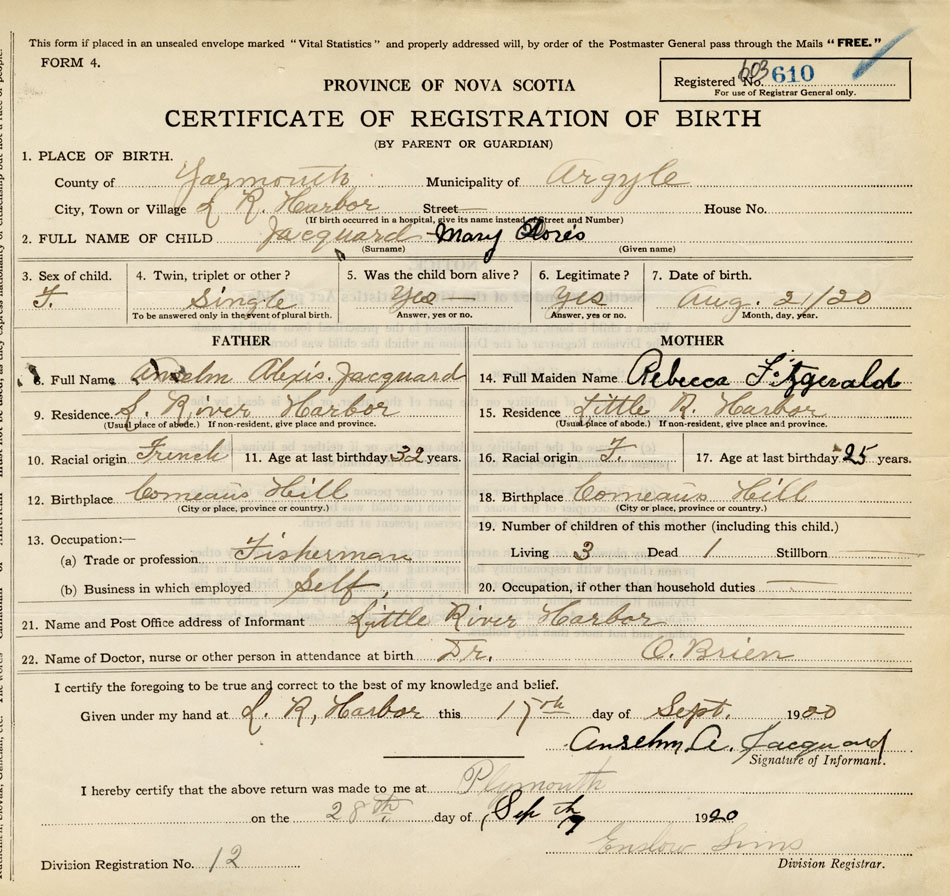 This form if placed in an unsealed envelope marked "Vital Statistics" and properly addressed will, by order of the Postmaster General pass through the Mails "FREE."
FORM 4.
Registered No. 603 610
For use of Registrar General only.
PROVINCE OF NOVA SCOTIA
CERTIFICATE OF REGISTRATION OF BIRTH
(BY PARENT OR GUARDIAN)
1. PLACE OF BIRTH.
County of Yarmouth Municipality of Argyle
City, Town or Village L R. Harbor Street House No.
(If birth occurred in a hospital, give its name instead of Street and Number)
2. FULL NAME OF CHILD Jacquard Mary Dores
(Surname) (Given name)
3. Sex of child. 4. Twin, triplet or other? 5. Was the child born alive? 6. Legitimate? 7. Date of birth.
F. Single Yes Yes Aug. 21/20
To be answered only in the event of plural birth. Answer, yes or no. Answer, yes or no. Month, day, year.
FATHER MOTHER
8. Full Name Anselm Alexis. Jacquard 14. Full Maiden Name Rebecca Fitzgerald
9. Residence. L. River Harbor 15. Residence Little R. Harbor
(Usual place of abode.) If non-resident, give place and province. (Usual place of abode.) If non-resident, give place and province.
10. Racial origin French 11. Age at last birthday 32 years. 16. Racial origin F. 17. Age at last birthday 25 years.
12. Birthplace Comeaus Hill 18. Birthplace Comeaus Hill
(City or place, province or country.) (City or place, province or country.)
13. Occupation:— 19. Number of children of this mother (including this child.)
(a) Trade or profession Fisherman Living 3 Dead 1 Stillborn
(b) Business in which employed Self 20. Occupation, if other than household duties
21. Name and Post Office address of Informant Little River Harbor
22. Name of Doctor, nurse or other person in attendance at birth Dr. O. Brien
I certify the foregoing to be true and correct to the best of my knowledge and belief.
Given under my hand at L. R, Harbor this 17th day of Sept. 1920
Anselm A. Jacquard
Signature of Informant.
I hereby certify that the above return was made to me at Plymouth
on the 28th day of Sep th 1920
Enslow Sims
Division Registration No. 12 Division Registrar.